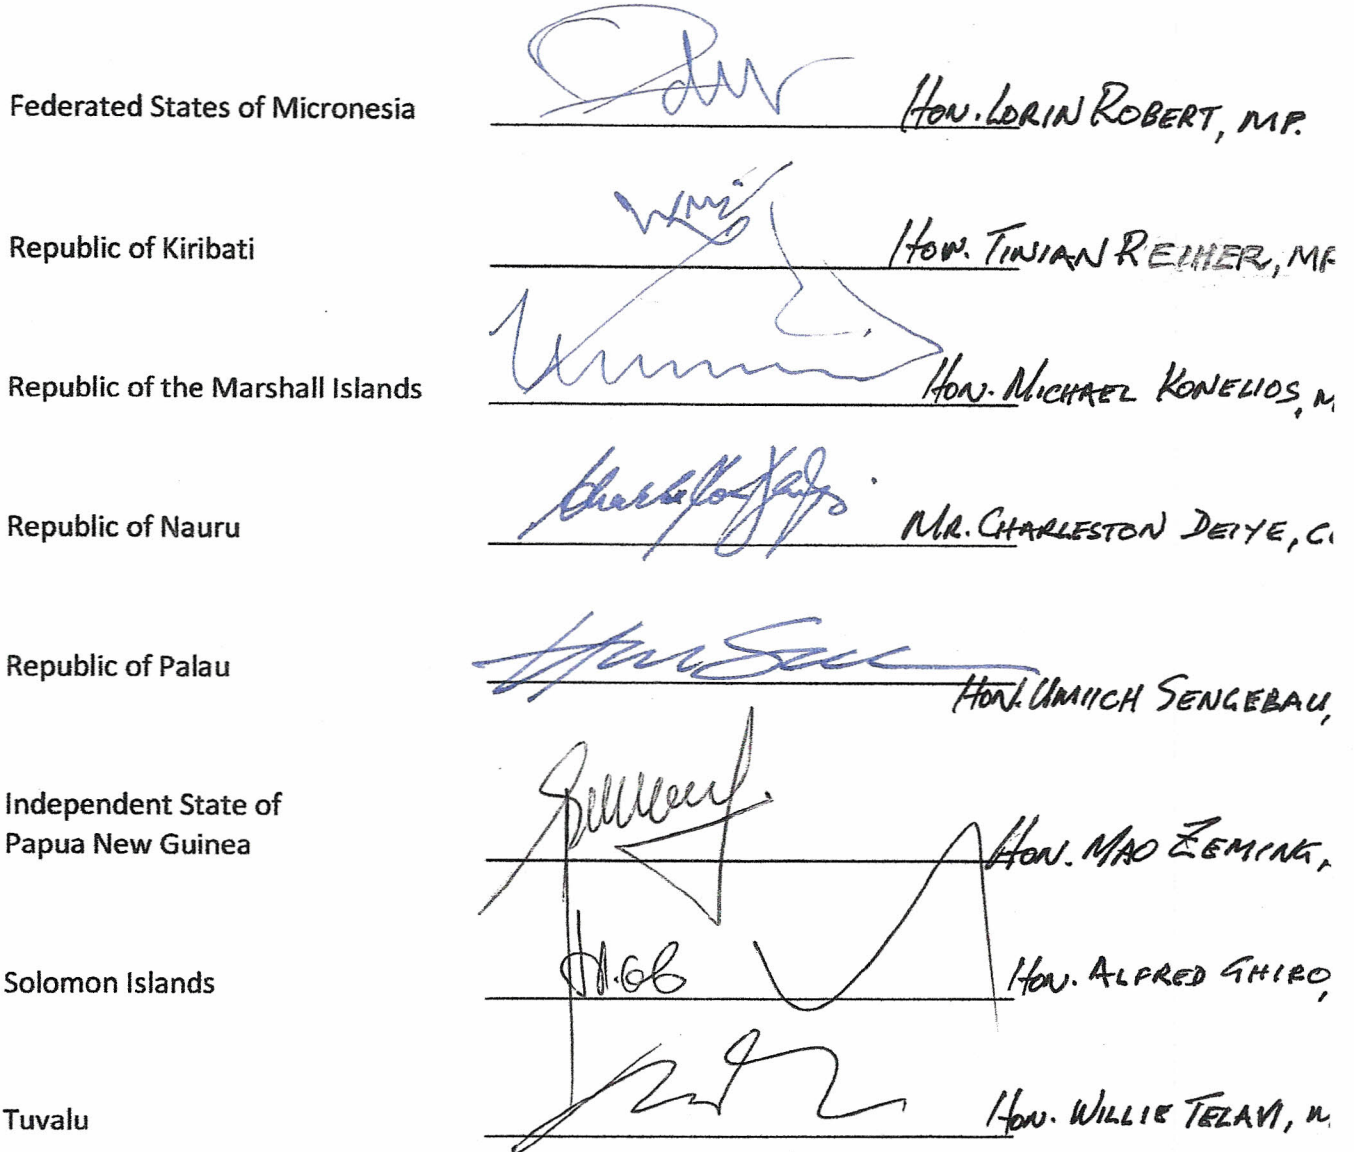 Federated States of Micronesia HON. LORIN ROBERT, MP.
Republic of Kiribati HON. TINIAN REIHER, MP
Republic of the Marshall Islands HON. MICHAEL KONELIOS, M
Republic of Nauru MR. CHARLESTON DEIYE, C
Republic of Palau HON. UMIICH SENGEBAU,
Independent State of
Papua New Guinea HON. MAO ZEMING,
Solomon Islands HON. ALFRED GHIRO,
Tuvalu HON. WILLIE TELAVI,